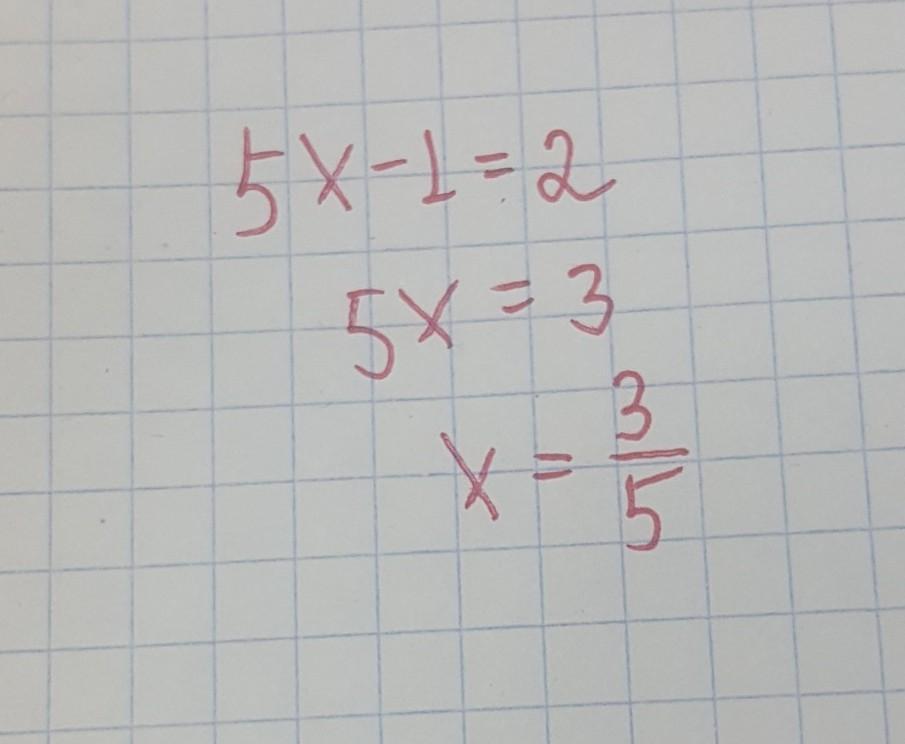 5x-1=2
5x=3
x=3/5